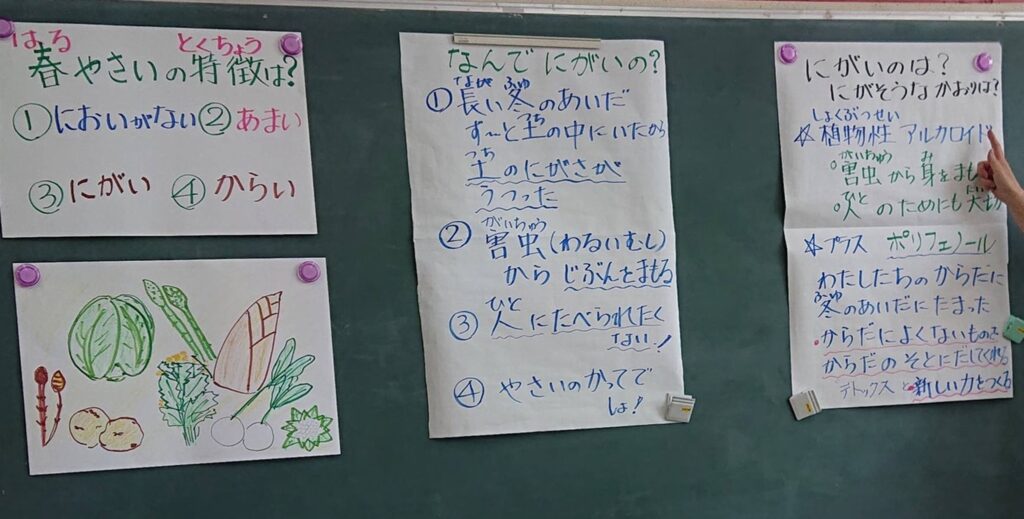 はる とくちょう
春やさいの特徴は?
①においがない②あまい
③にがい ④からい
なんでにがいの?
なが ふゆ
①長い冬のあいだ
つち
ず〜と土の中にいたから
つち
土のにがさが
うつった
がいちゅう
②害虫(わるいむし)
からじぶんをまもる
ひと
③人にたべられたく
ない!
④やさいのかってで
しょ!
にがいのは?
にがそうなかおりは?
しょくぶつせい
☆植物性 アルカロイド
がいちゅう み
○害虫から身をまも
ひと
○人のためにも
☆プラス ポリフェノール
わたしたちのからだに
ふゆ
冬のあいだにたまった
・からだによくないものを
からだのそとにだしてくれる
デトックス と・新しい力をつくる